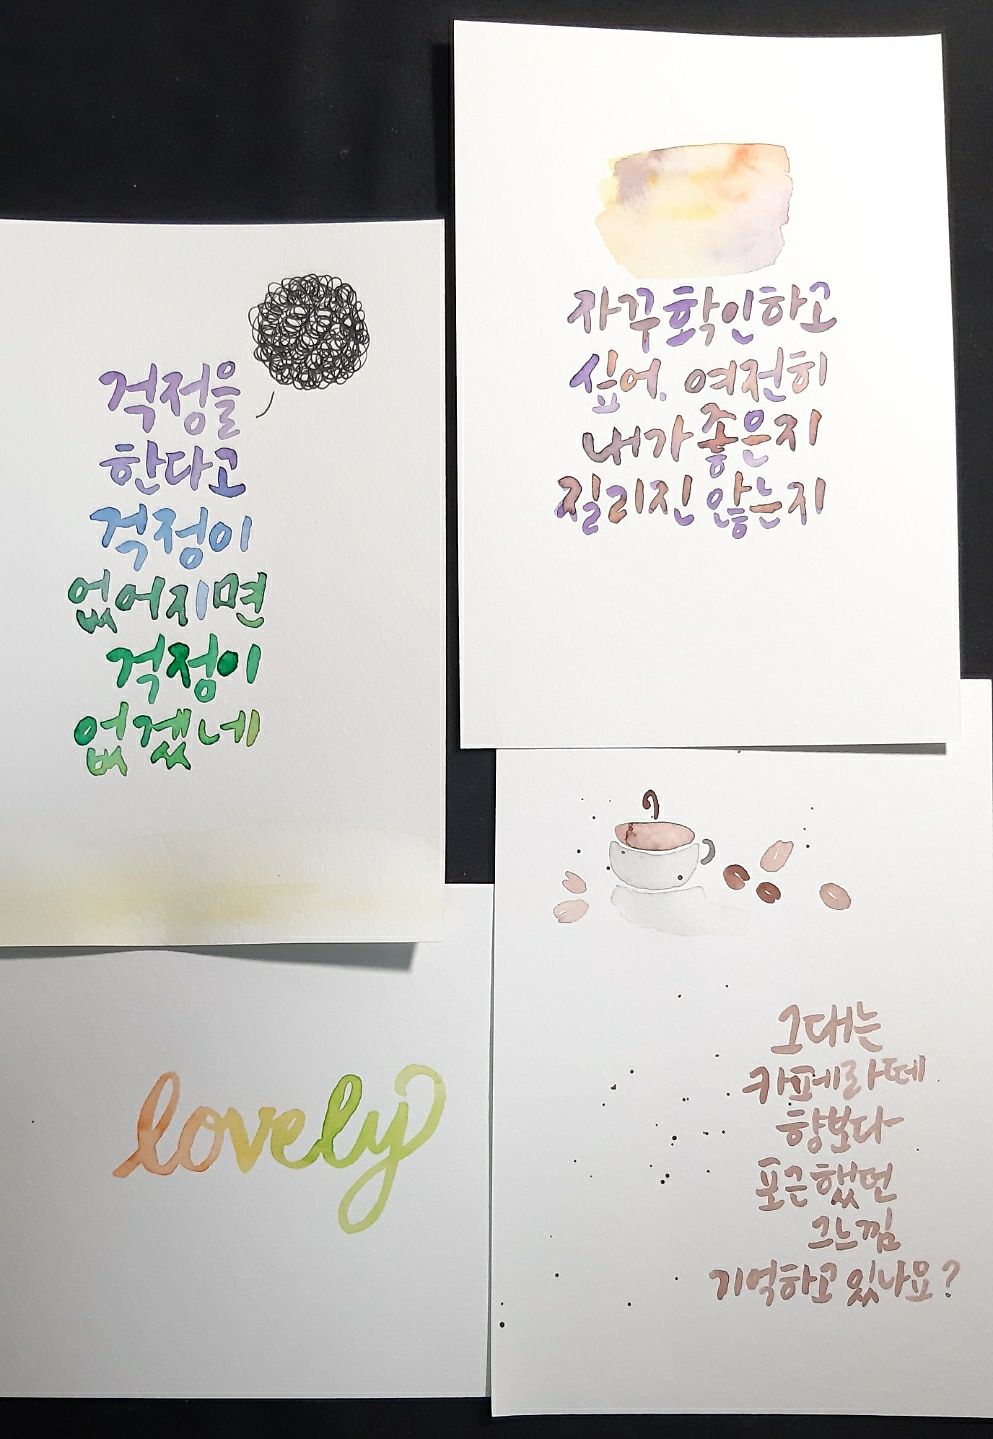 걱정을
한다고
걱정이
없어지면
걱정이
없겠네
자꾸 확인하고
싶어. 여전히
내가 좋은지
질리진 않는지
lovely
그대는
카페라떼
향보다
포근했던
그 느낌
기억하고 있나요?